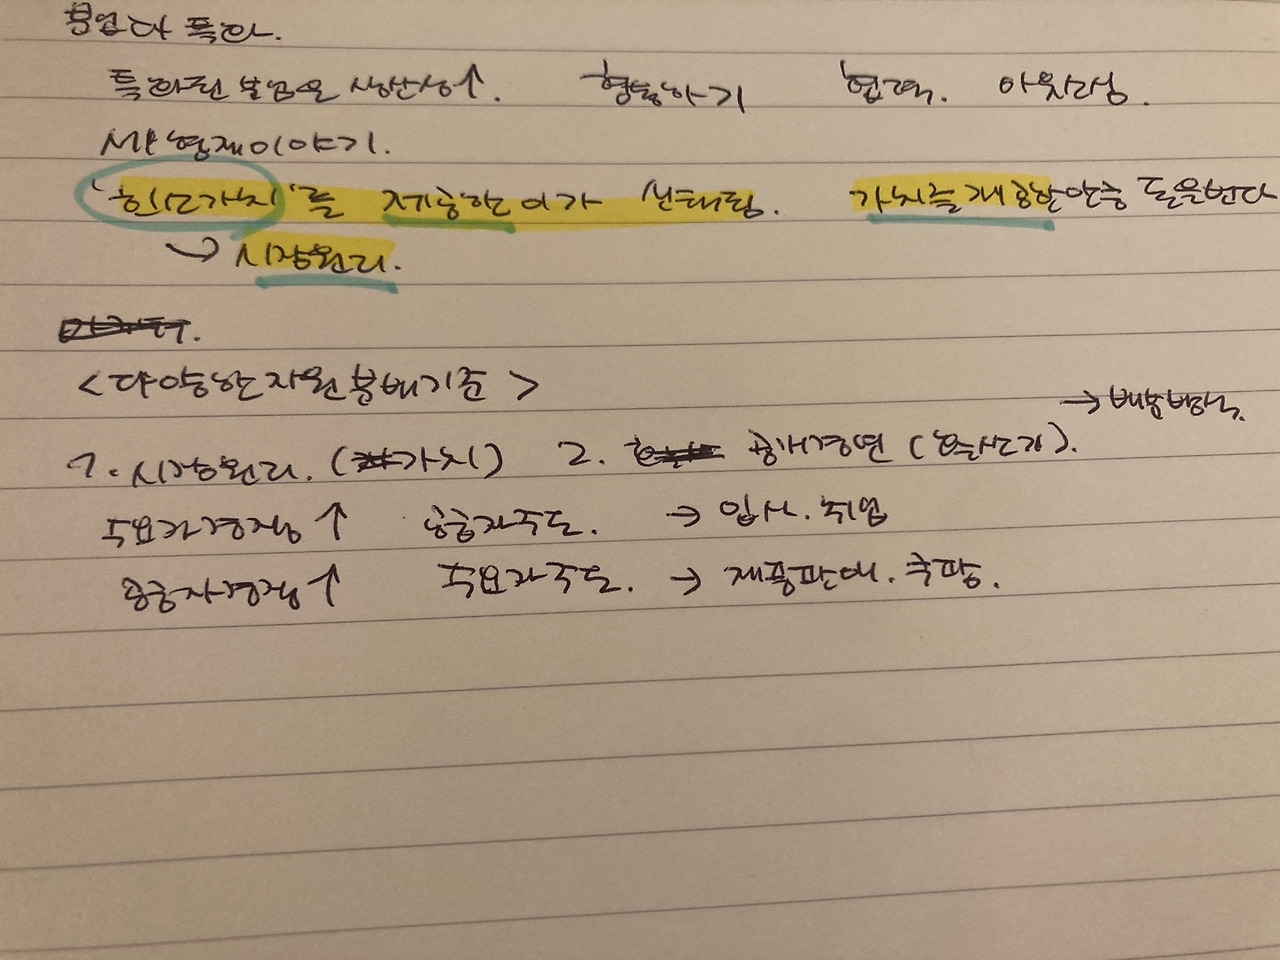 분업과 특화.
특화된 분업은 생산성↑. 협동하기 협력. 아웃라싱.
세 형제이야기.
'희소가치'를 제공한 이가 선택됨. 가치를 제공한 만큼 돈을 번다
→ 시장원리.
<다양한 자원 분배기준>
→ 배분방식.
1. 시장원리. (가치) 2. 공개경연 (음산기).
수요자경쟁↑ 공급자주도. → 입사. 취업
공급자경쟁↑ 수요자주도. → 제품판매. 쿠팡.